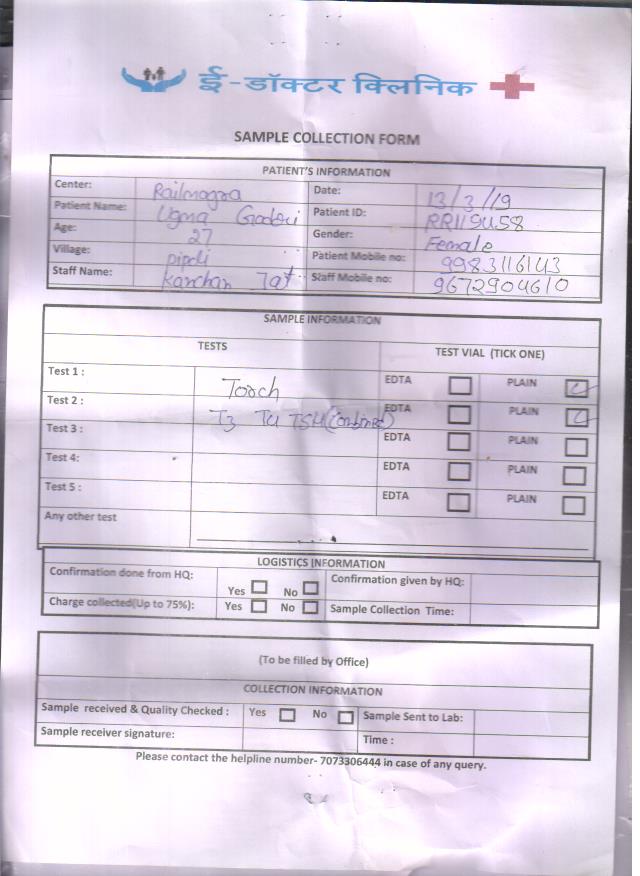 ई-डॉक्टर क्लिनिक
SAMPLE COLLECTION FORM
PATIENT'S INFORMATION
Center: Railmagra Date: 13/3/19
Patient Name: Ugma Patient ID: RR119458
Age: 27 Gender: Female
Village: pipli Patient Mobile no: 9983116143
Staff Name: Kanchan Jat Staff Mobile no: 9672904610
SAMPLE INFORMATION
TESTS TEST VIAL (TICK ONE)
Test 1 : Torch EDTA PLAIN
Test 2 : T3 T4 TSH (Combined) EDTA PLAIN
Test 3 : EDTA PLAIN
Test 4: EDTA PLAIN
Test 5 : EDTA PLAIN
Any other test
LOGISTICS INFORMATION
Confirmation done from HQ: Yes No Confirmation given by HQ:
Charge collected(Up to 75%): Yes No Sample Collection Time:
(To be filled by Office)
COLLECTION INFORMATION
Sample received & Quality Checked : Yes No Sample Sent to Lab:
Sample receiver signature: Time :
Please contact the helpline number- 7073306444 in case of any query.